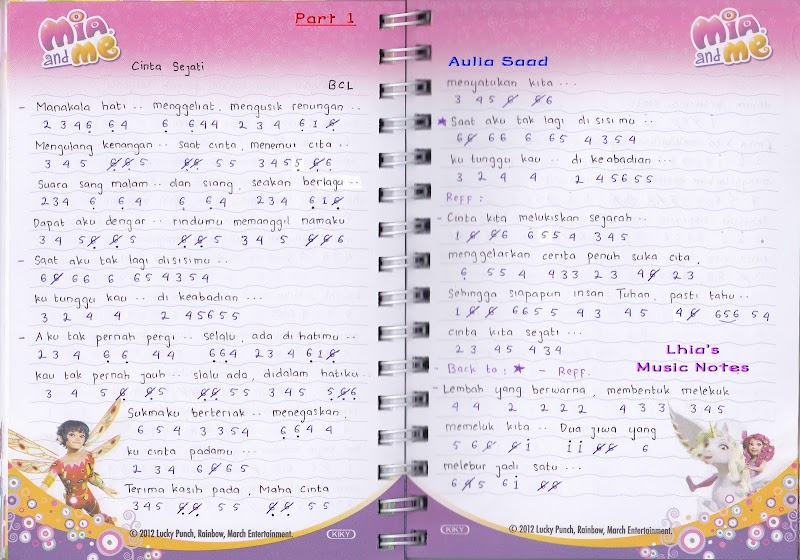 Part 1
mia and me
Cinta Sejati
BCL
- Manakala hati .. menggeliat, mengusik renungan ..
2 3 4 6 6 4 6 6 4 4 2 3 4 6 1 6̸
Mengulang kenangan .. saat cinta, menemui cita ..
3 4 5 6̸ 6̸ 5 6̸ 6̸ 5 5 3 4 5 5 6̸ 6
Suara sang malam .. dan siang, seakan berlagu ..
2 3 4 6 6 4 6 6 4 2 3 4 6 1 6̸
Dapat aku dengar .. rindumu memanggil namaku
3 4 5 6̸ 6̸ 5 6̸ 6̸ 5 3 4 5 6̸ 6̸ 6
- Saat aku tak lagi disisimu ..
6 6̸ 6 6 6 6 5 4 3 5 4
ku tunggu kau .. di keabadian ...
3 2 4 4 2 4 5 6 5 5
- Aku tak pernah pergi .. selalu, ada di hatimu ..
2 3 4 6 6 4 4 6 6 4 2 3 4 6 1 6̸
kau tak pernah jauh .. slalu ada, didalam hatiku ..
3 4 5 6̸ 6̸ 5 6̸ 6̸ 5 5 3 4 5 5 6̸ 6
Sukmaku berteriak .. menegaskan,
6 5 4 3 3 5 4 6 6 4 4
ku cinta padamu ...
2 3 4 6 6̸ 6 5
Terima kasih pada, Maha Cinta
3 4 5 6̸ 6̸ 5 5 6̸ 6̸ 5 5
© 2012 Lucky Punch, Rainbow, March Entertainment.
KIKY
mia and me
Aulia Saad
menyatukan kita ...
3 4 5 6̸ 6̸ 6
★ Saat aku tak lagi disisimu ..
6 6̸ 6 6 6 6 5 4 3 5 4
ku tunggu kau .. di keabadian ...
3 2 4 4 2 4 5 6 5 5
Reff :
- Cinta kita melukiskan sejarah ..
1 6̸ 6̸ 6 6 5 5 4 3 4 5
menggelarkan cerita penuh suka cita,
6 5 5 4 4 3 3 2 3 4 6̸ 2 3
Sehingga siapapun insan Tuhan, pasti tahu ..
1 6̸ 6̸ 6 6 5 5 4 3 4 5 4 6̸ 6 5 6 5 4
cinta kita sejati ...
2 3 4 5 4 3 4
Lhia's
Music Notes
- Back to : ★ - Reff.
- Lembah yang berwarna, membentuk melekuk
4 4 2 2 2 2 4 3 3 3 4 5
memeluk kita .. Dua jiwa yang
5 6 6̸ 6̸ i i i 6̸ 6̸ 6
melebur jadi satu ...
6 6̸ 5 6 i 6̸ 6̸
© 2012 Lucky Punch, Rainbow, March Entertainment.
KIKY